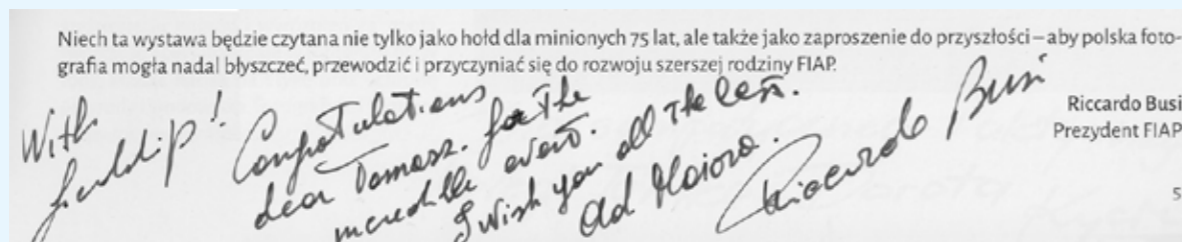 Niech ta wystawa będzie czytana nie tylko jako hołd dla minionych 75 lat, ale także jako zaproszenie do przyszłości – aby polska foto-
grafia mogła nadal błyszczeć, przewodzić i przyczyniać się do rozwoju szerszej rodziny FIAP.
Riccardo Busi
Prezydent FIAP
With
Congratulations
dear Tomasz. for the
incredible event.
I wish you all the best.
Ad Maiora.
Riccardo Busi
5